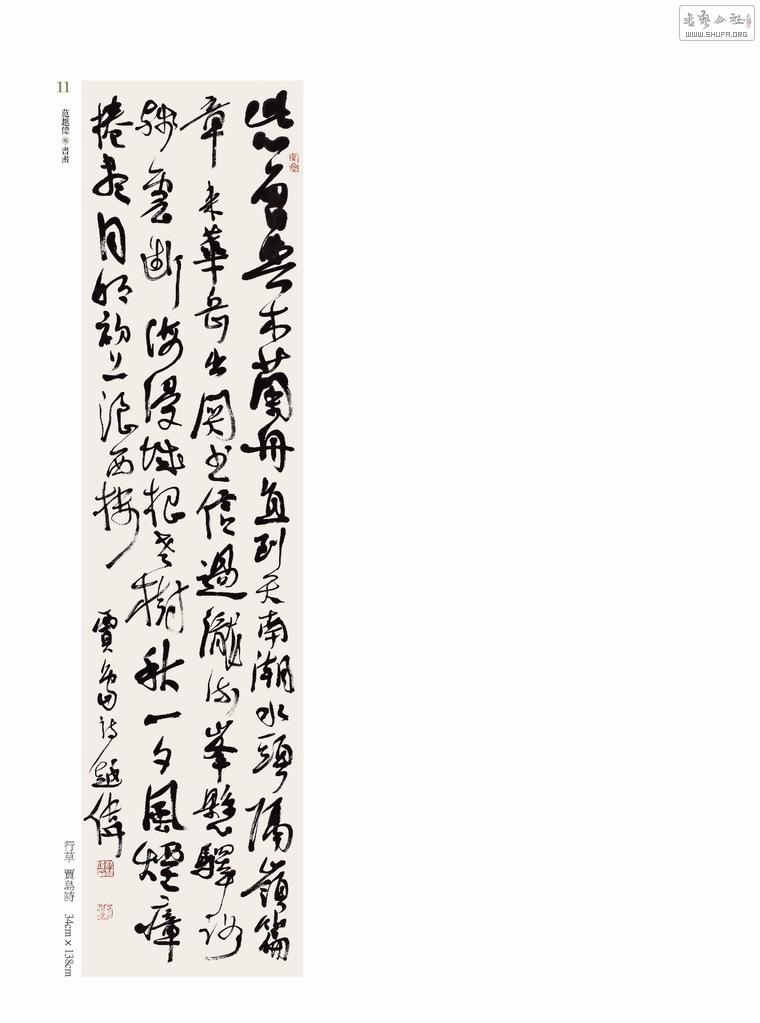 書藝公社
WWW.SHUFA.ORG
11
范越偉 書畫
此心曾與木蘭舟直到天南潮水頭隔嶺篇
章來華岳出關書信過瀧流峯懸驛路
殘雲斷海浸城根老樹秋一夕風煙瘴
捲盡月明初上浪西樓 賈島詩 越偉
行草 賈島詩 34cm×138cm